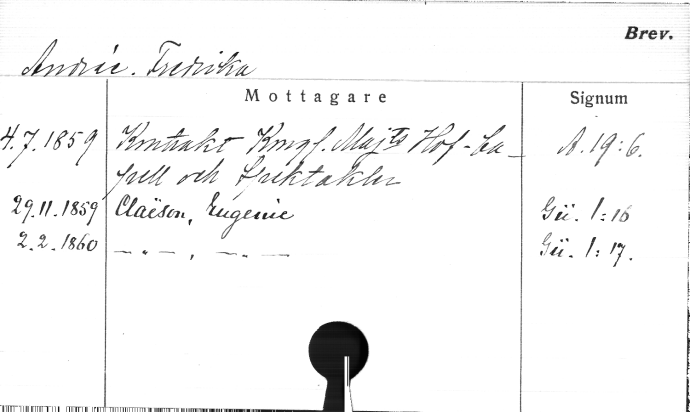 Brev.
Andrée. Fredrika
Mottagare Signum
4.7.1859 Kontrakt Kungl. Maj:ts Hof-ca- A.19:6.
pell och Spektakler
29.11.1859 Claëson, Eugenie Gü. 1:16
2.2.1860 — " — , — " — Gü. 1:17.